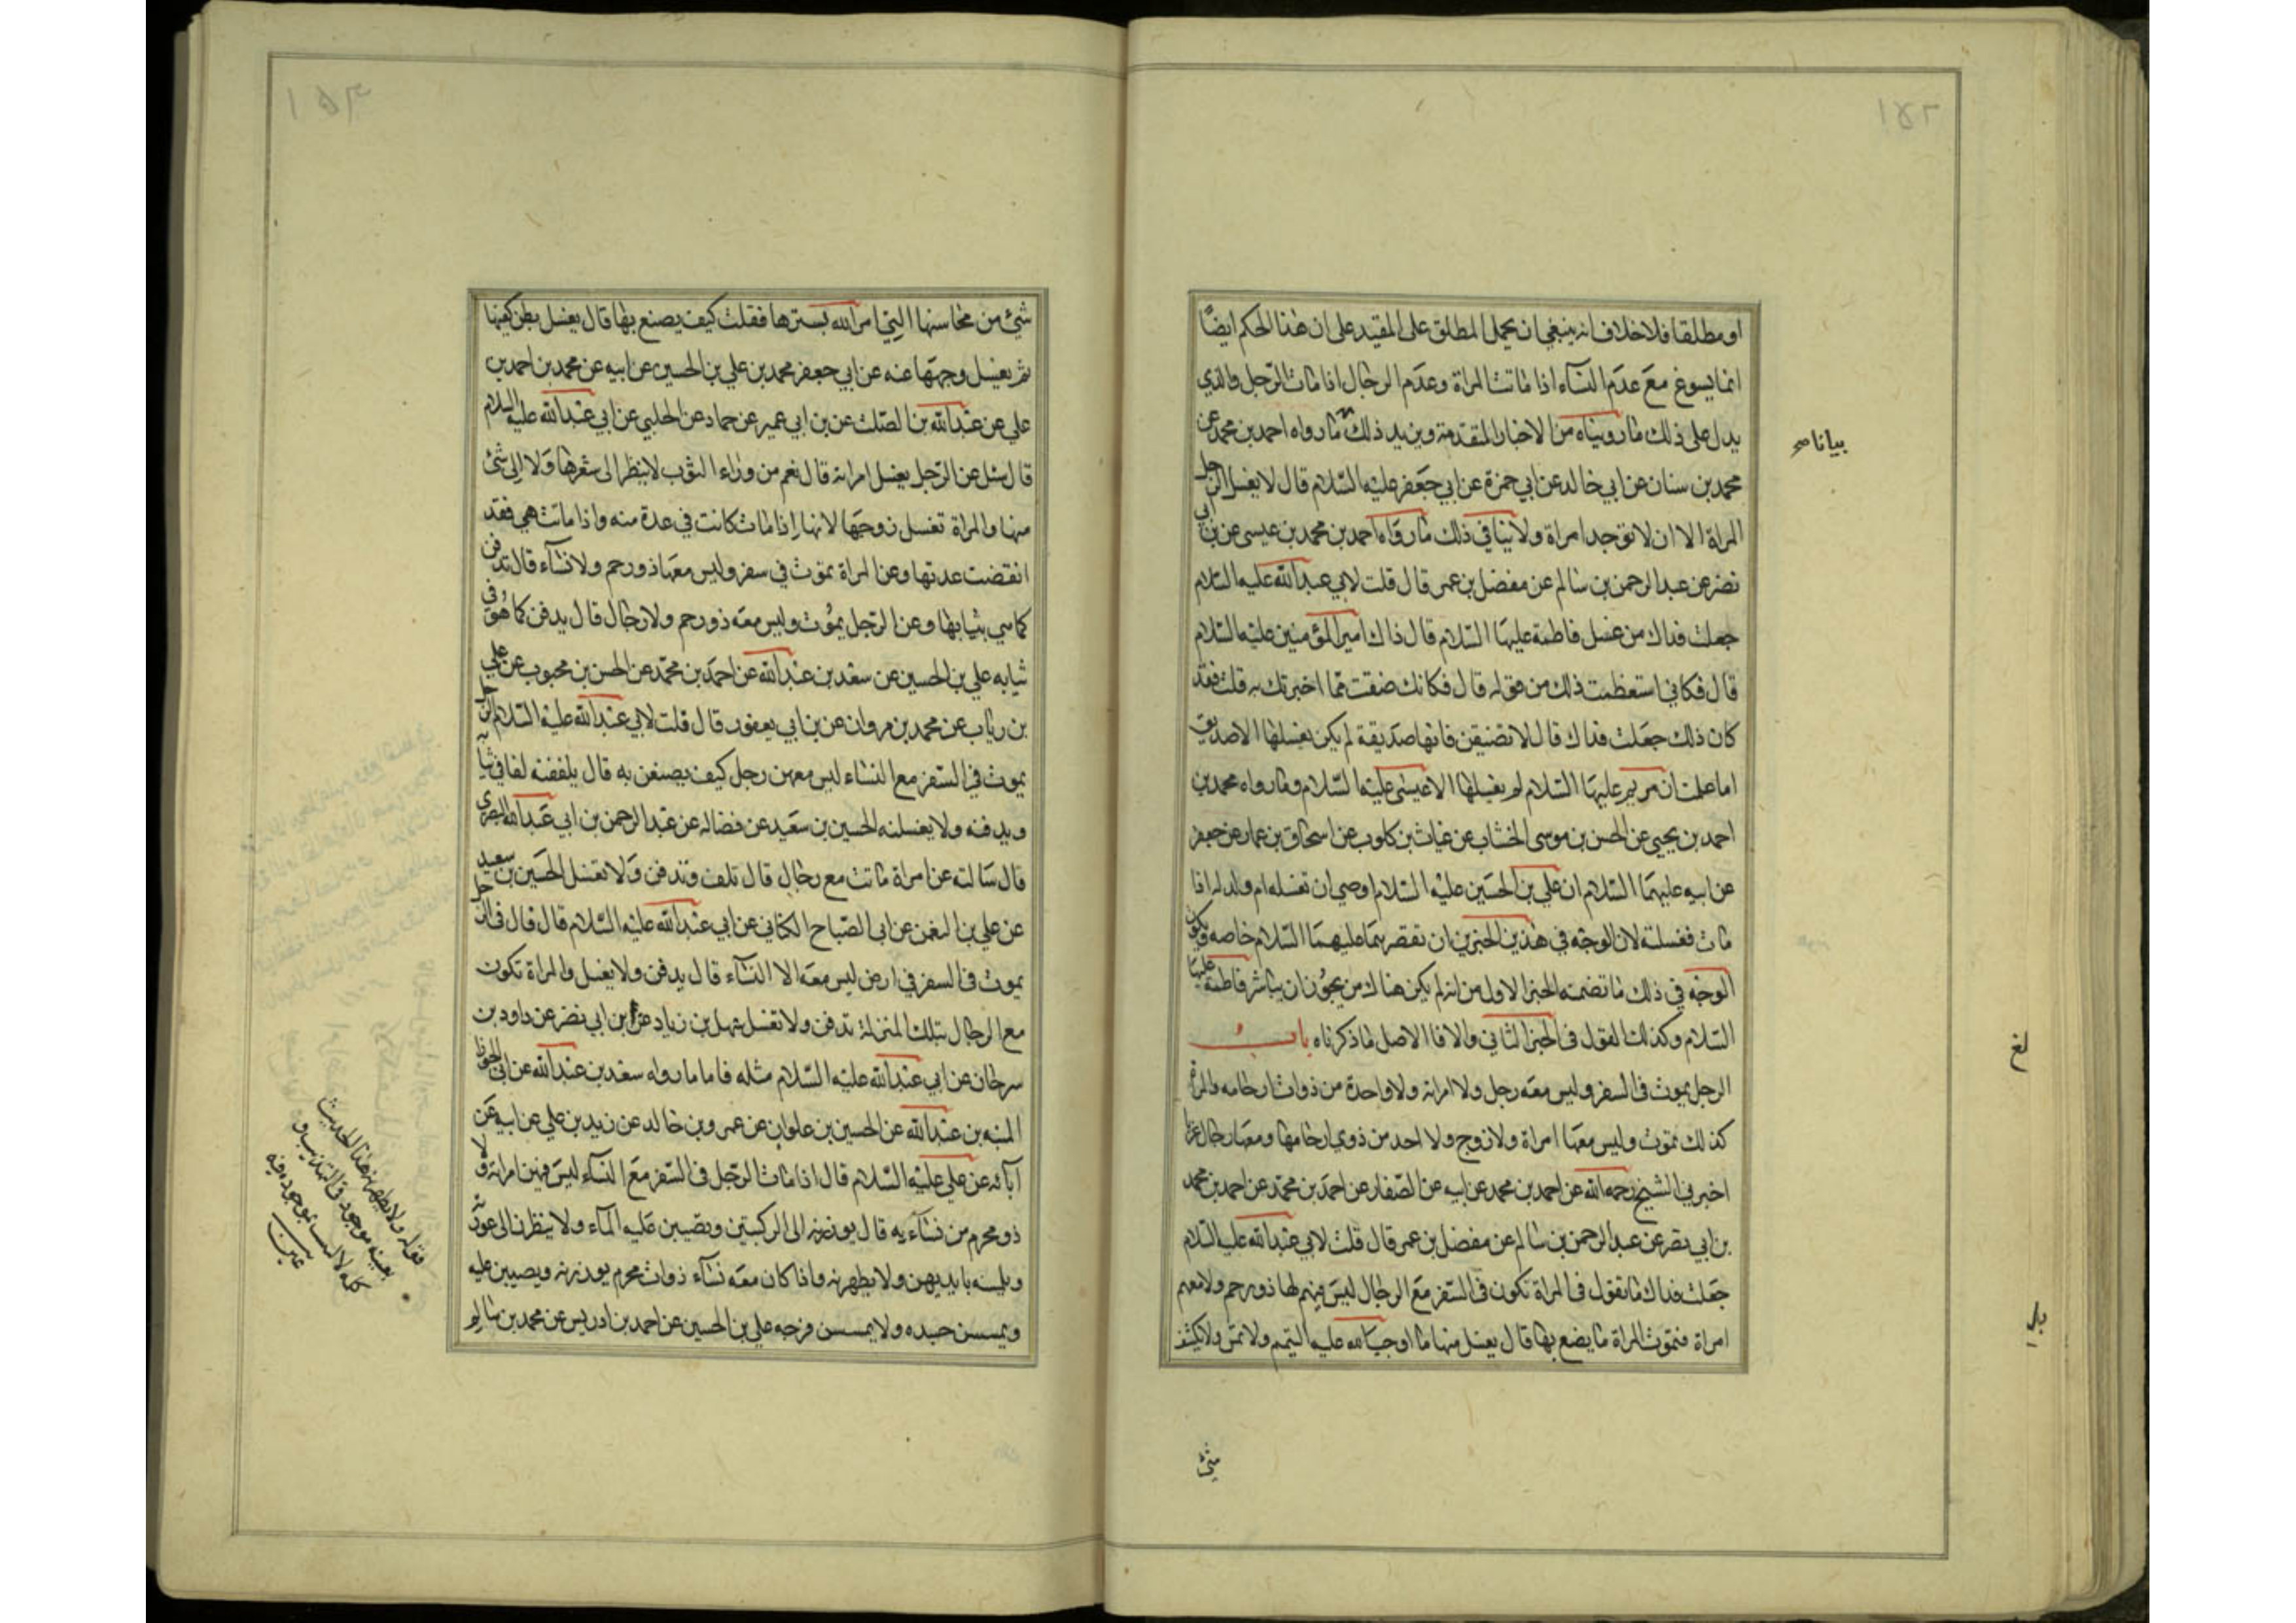 ١٥٢
او مطلقا فلا خلاف انه ينبغي ان يحمل المطلق على المقيد على ان هذا الحكم ايضًا
انما يسوغ مع عدم النسآء اذا ماتت المراة وعدم الرجال اذا مات الرجل والذي
يدل على ذلك ما رويناه من الاخبار المتقدمة ويزيد ذلك ما رواه احمد بن محمد عن
بيانا صح
محمد بن سنان عن ابي خالد عن ابي حمزة عن ابي جعفر عليه السلام قال لا يغسل الرجل
المراة الا ان لا توجد امراة ولا ينافي ذلك ما رواه احمد بن محمد بن عيسى عن بن ابي
نصر عن عبد الرحمن بن سالم عن مفضل بن عمر قال قلت لابي عبد الله عليه السلام
جعلت فداك من غسل فاطمة عليها السلام قال ذاك امير المؤمنين عليه السلام
قال فكاني استعظمت ذلك من قوله قال فكانك ضقت مما اخبرتك به قلت فقد
كان ذلك جعلت فداك قال لا تضيقن فانها صديقة لم يكن يغسلها الا صديق
اما علمت ان مريم عليها السلام لم يغسلها الا عيسى عليه السلام وما رواه محمد بن
احمد بن يحيى عن الحسن بن موسى الخشاب عن غياث بن كلوب عن اسحاق بن عمار عن جعفر
عن ابيه عليهما السلام ان علي بن الحسين عليه السلام اوصى ان تغسله ام ولد له اذا
مات فغسلته لان الوجه في هذين الخبرين ان نقصرهما عليهما السلام خاصه ويكون
الوجه في ذلك ما تضمنه الخبر الاول من انه لم يكن هناك من يجوز ان يباشر فاطمة عليها
السلام وكذلك القول في الخبر الثاني والا فالاصل ما ذكرناه باب
الرجل يموت في السفر وليس معه رجل ولا امراته ولا واحدة من ذوات ارحامه والمراة
كذلك تموت وليس معها امراة ولا زوج ولا احد من ذوي ارحامها ومعها رجال غربا
اخبرني الشيخ رحمه الله عن احمد بن محمد عن ابيه عن الصفار عن احمد بن محمد عن احمد بن محمد
بن ابي نصر عن عبد الرحمن بن سالم عن مفضل بن عمر قال قلت لابي عبد الله عليه السلام
جعلت فداك ما تقول في المراة تكون في السفر مع الرجال ليس فيهم لها ذو رحم ولا معهم
امراة فتموت المراة ما يصنع بها قال يغسل منها ما اوجب الله عليه التيمم ولا تمس ولا يكشف
شئ
١٥٣
شئ من محاسنها التي امر الله بسترها فقلت كيف يصنع بها قال يغسل بطن كفيها
ثم يغسل وجهها عنه عن ابي جعفر محمد بن علي بن الحسين عن ابيه عن محمد بن احمد بن
علي عن عبد الله بن الصلت عن بن ابي عمير عن حماد عن الحلبي عن ابي عبد الله عليه السلام
قال سئل عن الرجل يغسل امراته قال نعم من وراء الثوب لا ينظر الى شعرها ولا الى شئ
منها والمراة تغسل زوجها لانها اذا مات كانت في عدة منه واذا ماتت هي فقد
انقضت عدتها وعن المراة تموت في سفر وليس معها ذو رحم ولا نسآء قال تدفن
كما هي بثيابها وعن الرجل يموت وليس معه ذو رحم ولا رجال قال يدفن كما هو في
ثيابه علي بن الحسين عن سعد بن عبد الله عن احمد بن محمد عن الحسن بن محبوب عن علي
بن رياب عن محمد بن مروان عن بن ابي يعفور قال قلت لابي عبد الله عليه السلام الرجل
يموت في السفر مع النساء ليس معهن رجل كيف يصنعن به قال يلففنه لفا في ثيابه
ويدفنه ولا يغسلنه الحسين بن سعيد عن فضاله عن عبد الرحمن بن ابي عبد الله البصري
قال سالته عن امراة ماتت مع رجال قال تلف وتدفن ولا تغسل الحسين بن سعيد
عن علي بن النعمن عن ابي الصباح الكناني عن ابي عبد الله عليه السلام قال قال في الرجل
يموت في السفر في ارض ليس معه الا النسآء قال يدفن ولا يغسل والمراة تكون
مع الرجال بتلك المنزلة تدفن ولا تغسل سهل بن زياد عن بن ابي نصر عن داود بن
سرحان عن ابي عبد الله عليه السلام مثله فاما ما رواه سعد بن عبد الله عن ابي الجوزا
المنبه بن عبد الله عن الحسين بن علوان عن عمرو بن خالد عن زيد بن علي عن ابيه عن
آبائه عن علي عليه السلام قال اذا مات الرجل في السفر مع النسآء ليس فيهن امراته ولا
ذو محرم من نسآءيه قال يوزرنه الى الركبتين ويصببن عليه المآء ولا ينظرن الى عورته
ويلمسنه بايديهن ولا يطهرنه واذا كان معه نسآء ذوات محرم يوزرنه ويصببن عليه
ويمسسن جسده ولا يمسسن فرجه علي بن الحسين عن احمد بن ادريس عن محمد بن سالم
قوله ولا يطهرنه هذا الحديث
بعينه موجود في التهذيب و
كلمة لا ليست بموجودة فيه